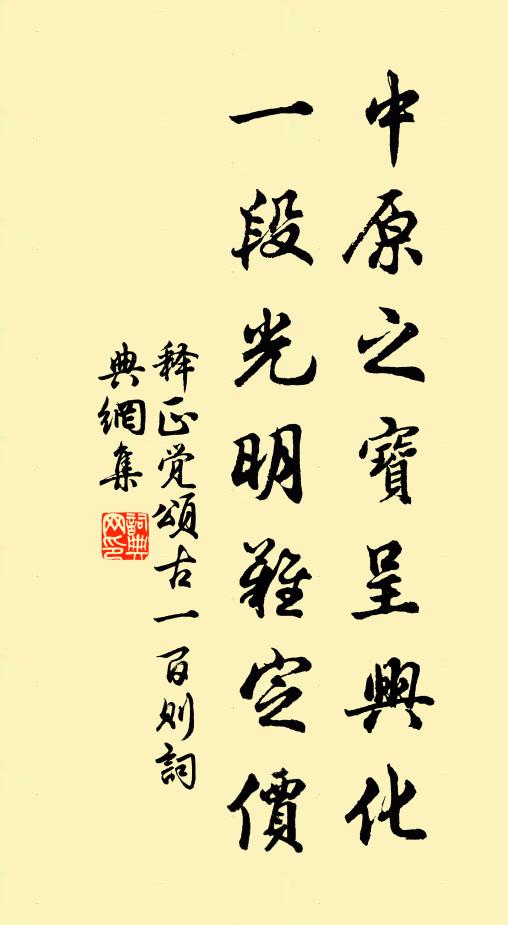 中原之寶呈興化
一段光明難定價
释正觉頌古一百则詞
典網集
詞典
网印